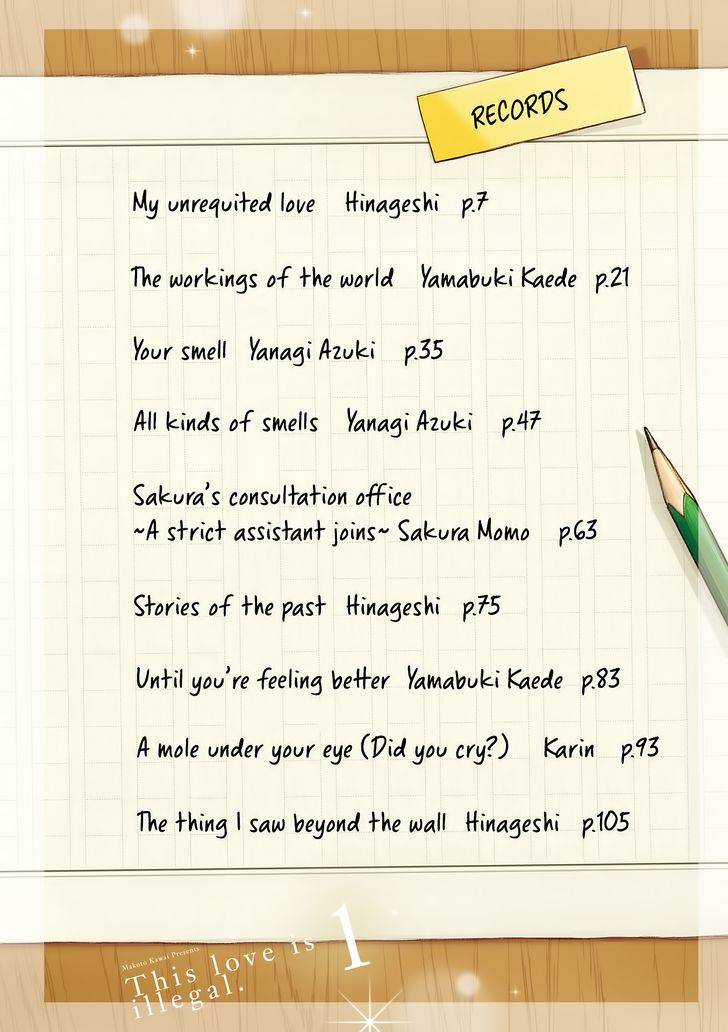 RECORDS
My unrequited love Hinageshi p.7
The workings of the world Yamabuki Kaede p.21
Your smell Yanagi Azuki p.35
All kinds of smells Yanagi Azuki p.47
Sakura's consultation office
~A strict assistant joins~ Sakura Momo p.63
Stories of the past Hinageshi p.75
Until you're feeling better Yamabuki Kaede p.83
A mole under your eye (Did you cry?) Karin p.93
The thing I saw beyond the wall Hinageshi p.105
Makoto Kawai Presents
This love is
illegal.
1